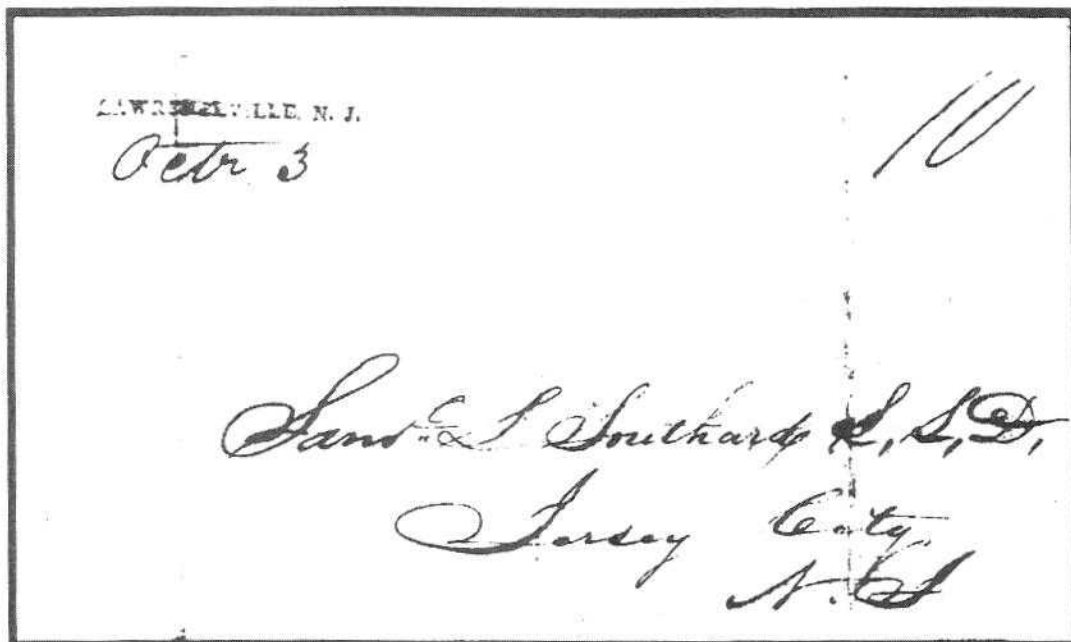 LAWRENCEVILLE, N. J.
Octr 3
10
Saml L Southard, L, L, D,
Jersey City
N. J